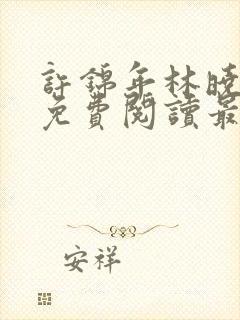 許錦年林曉
免費閱讀最
安祥